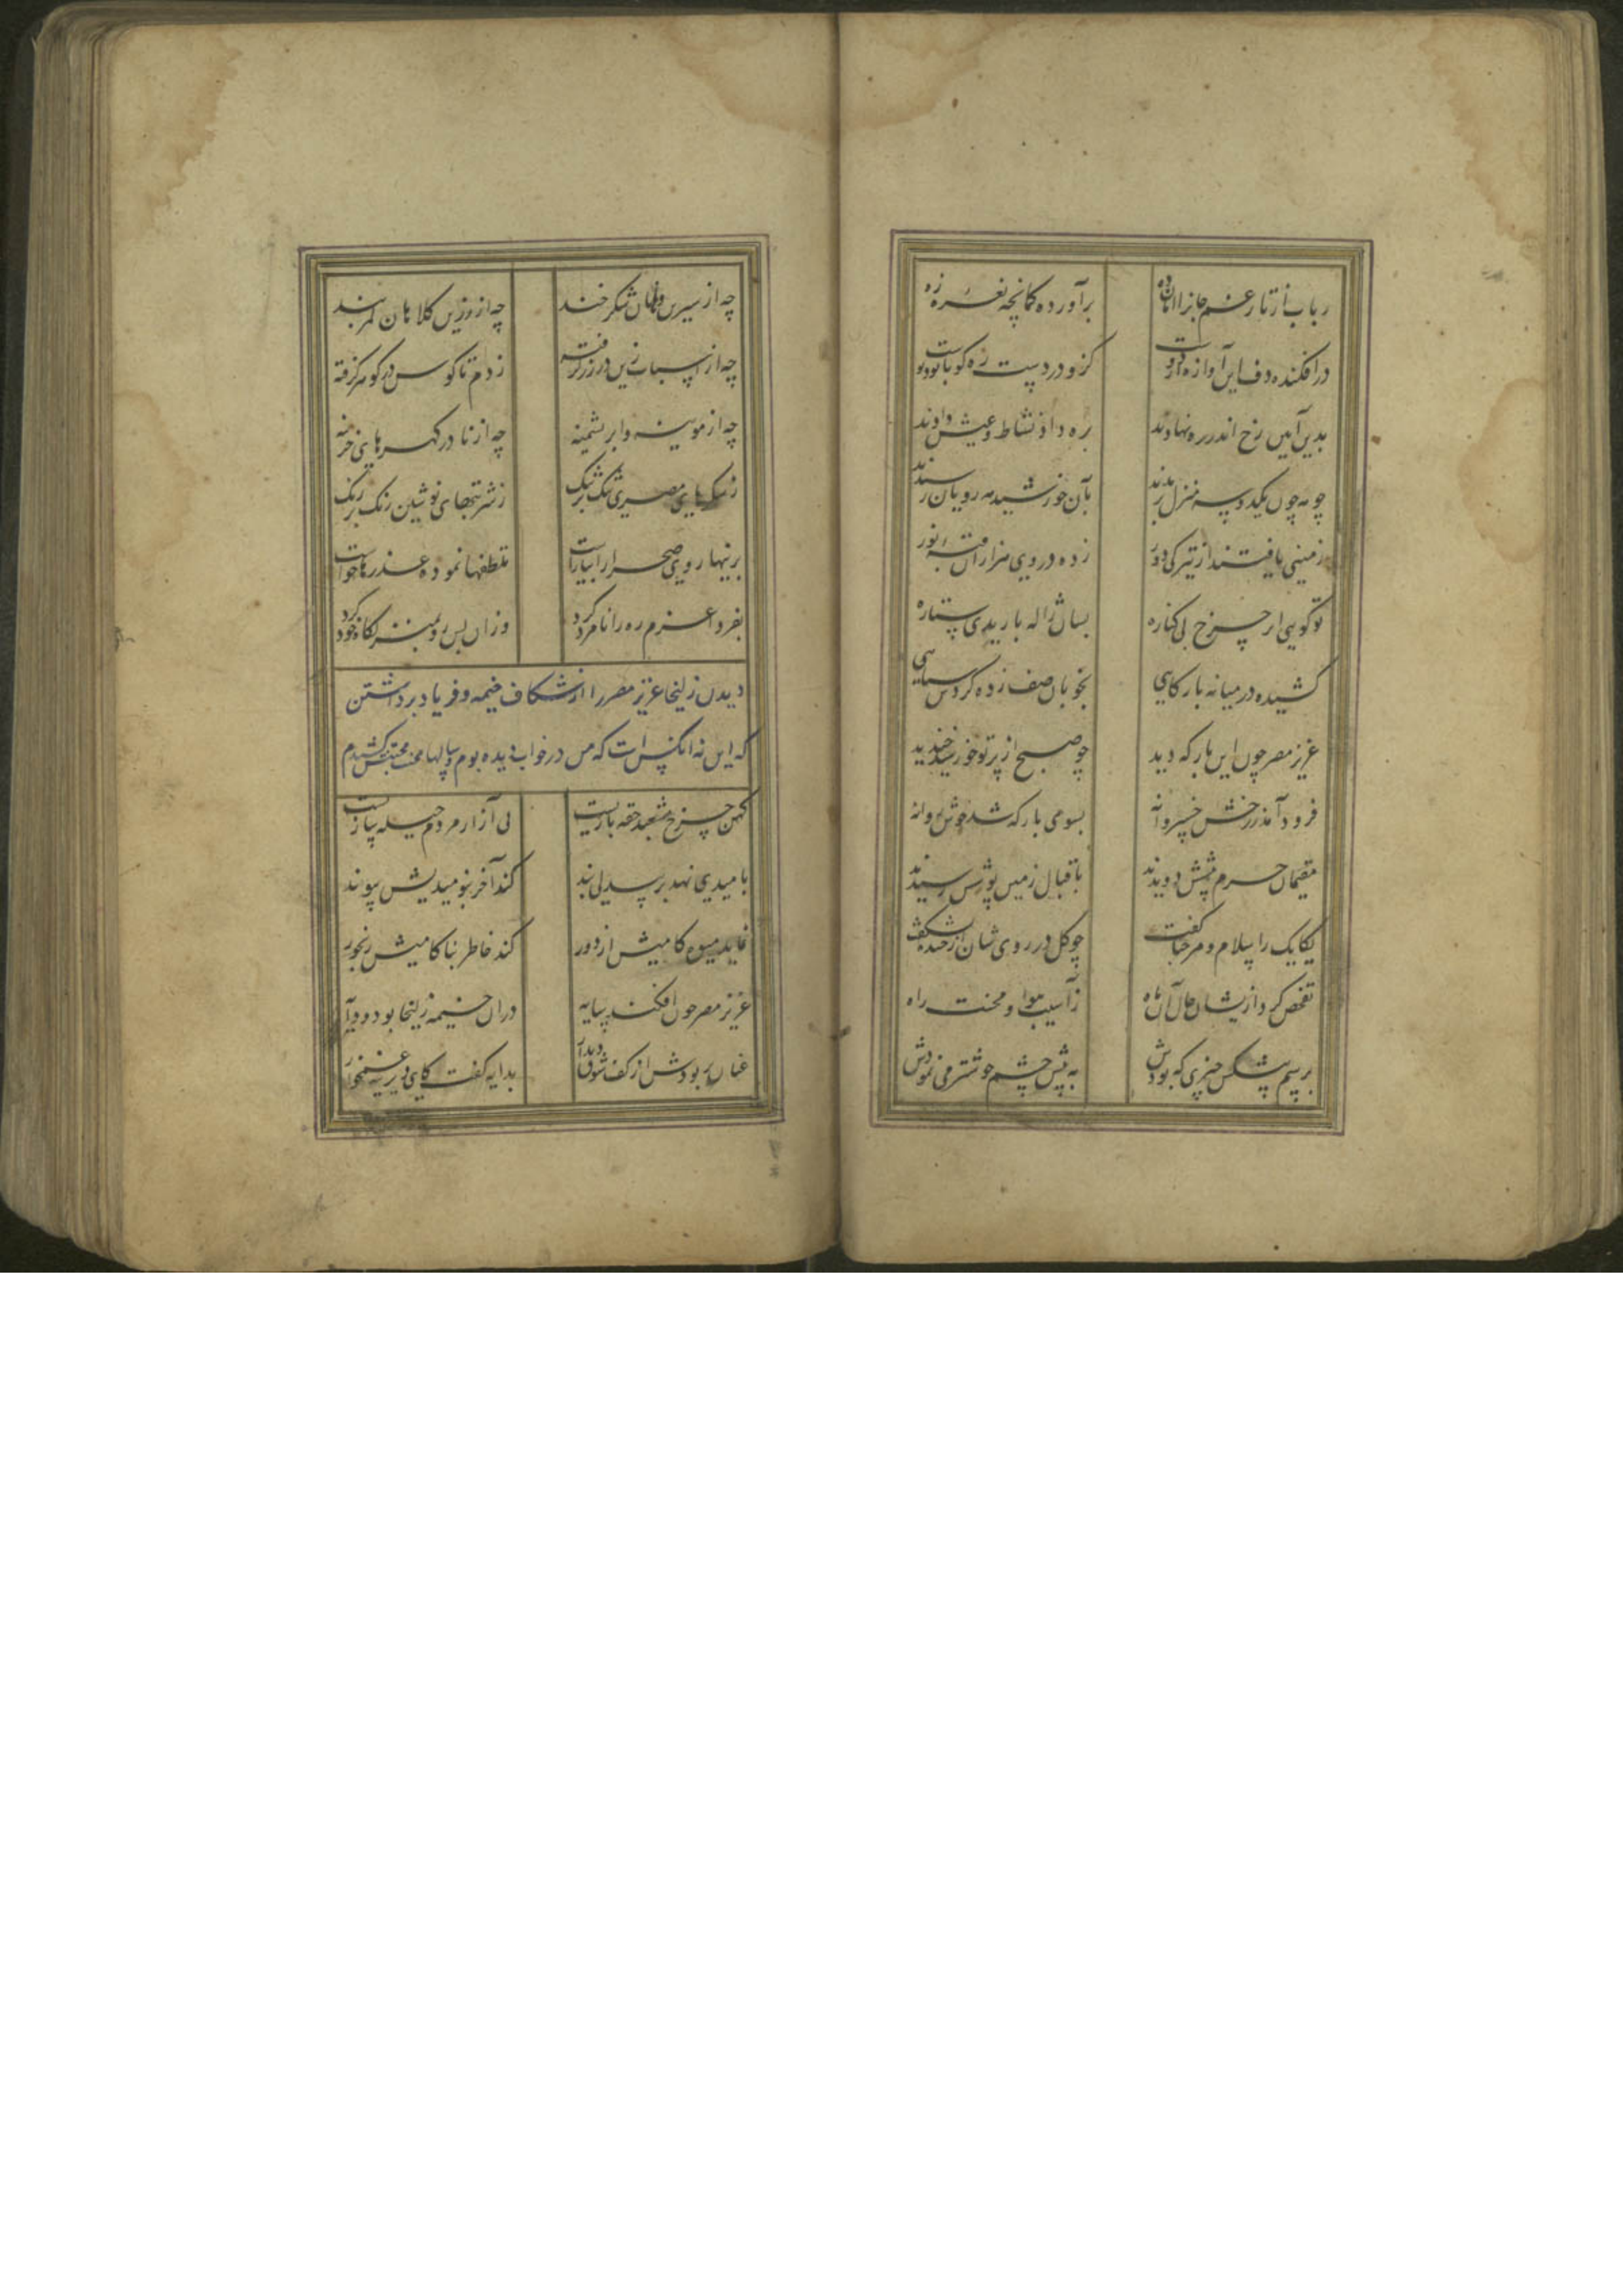 رباب از تار غم جانرا امان ده
برآورده کمانچه نغمره زه
درافکنده دف این آوازه از دوست
کزو در دست ره کوبان بود پوست
بدین آیین رخ اندر ره نهادند
ره داد نشاط و عیش دادند
چو مه چون یکد و سه منزل بریدند
بآن خورشید مه رویان رسیدند
زمینی یافتند از تیرکی دور
زده در وی هزاران قبه نور
تو کویی از چرخ بی کناره
بسان ژاله باریدی ستاره
کشیده در میانه بارکاهی
بخوبان صف زده کردش سپاهی
عزیز مصر چون این بارکه دید
چو صبح از پرتو خورشید خندید
فرود آمد ز رخش خسروانه
بسوی بارکه شد خوش روانه
مقیمان حرم پیشش دویدند
باقبال زمین بوسش رسیدند
یکایک را سلام و مرحبا کفت
چو کل در روی شان از خنده بشکفت
تفحص کرد ازیشان حال آن ماه
ز آسیب هوا و محنت راه
برسم پیشکش چیزی که بودش
به پیش چشم خوشتر می نمودش
چه از شیرین دهانان شکرخند
چه از زرین کلاهان کمربند
چه از اسبان زین در زر کرفته
ز دم تا کوس در کوهر کرفته
چه از موینه و ابریشمینه
چه از نادر کهرهای خزینه
ز شکرهای مصری تنک بر تنک
ز شربتهای نوشین رنک بر رنک
برینها روی صحرا را بیاراست
تلطفها نموده عذرها خواست
بفردا عزم ره را نامزد کرد
وزان پس رو بمنزلکاه خود کرد
دیدن زلیخا عزیز مصر را از شکاف خیمه و فریاد برداشتن
که این نه آنکس است که من در خواب دیده بوم و سالها محنت محبتش کشیدم
کهن چرخ مشعبد حقه بازیست
پی آزار مردم حیله سازیست
بامیدی نهد بر بیدلی بند
کند آخر بنومیدیش پیوند
نماید میوه کامیش از دور
کند خاطر بناکامیش رنجور
عزیز مصر چون افکند سایه
دران خیمه زلیخا بود و دایه
عنان بربودش از کف شوق دیدار
بدایه کفت کای دیرینه غمخوار